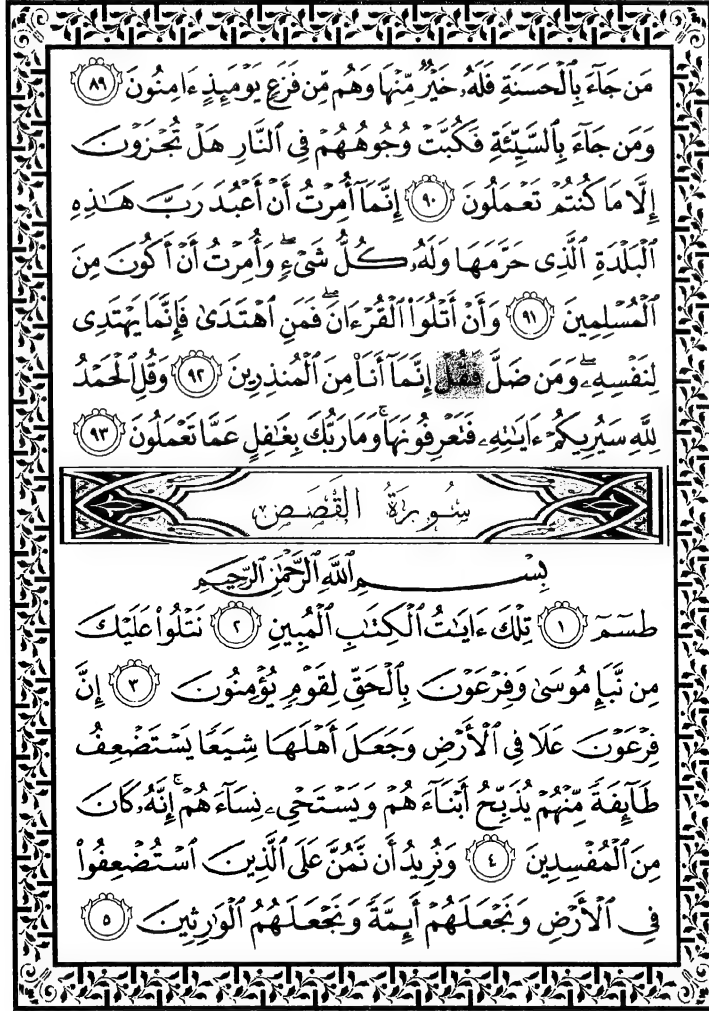 مَن جَآءَ بِٱلْحَسَنَةِ فَلَهُۥ خَيْرٌ مِّنْهَا وَهُم مِّن فَزَعٍ يَوْمَئِذٍ ءَامِنُونَ ٨٩
وَمَن جَآءَ بِٱلسَّيِّئَةِ فَكُبَّتْ وُجُوهُهُمْ فِى ٱلنَّارِ هَلْ تُجْزَوْنَ
إِلَّا مَا كُنتُمْ تَعْمَلُونَ ٩٠ إِنَّمَآ أُمِرْتُ أَنْ أَعْبُدَ رَبَّ هَٰذِهِ
ٱلْبَلْدَةِ ٱلَّذِى حَرَّمَهَا وَلَهُۥ كُلُّ شَىْءٍۖ وَأُمِرْتُ أَنْ أَكُونَ مِنَ
ٱلْمُسْلِمِينَ ٩١ وَأَنْ أَتْلُوَا۟ ٱلْقُرْءَانَۖ فَمَنِ ٱهْتَدَىٰ فَإِنَّمَا يَهْتَدِى
لِنَفْسِهِۦۖ وَمَن ضَلَّ فَقُلْ إِنَّمَآ أَنَا۠ مِنَ ٱلْمُنذِرِينَ ٩٢ وَقُلِ ٱلْحَمْدُ
لِلَّهِ سَيُرِيكُمْ ءَايَٰتِهِۦ فَتَعْرِفُونَهَاۚ وَمَا رَبُّكَ بِغَٰفِلٍ عَمَّا تَعْمَلُونَ ٩٣
سُورَةُ القَصَصِ
بِسْمِ ٱللَّهِ ٱلرَّحْمَٰنِ ٱلرَّحِيمِ
طسٓمٓ ١ تِلْكَ ءَايَٰتُ ٱلْكِتَٰبِ ٱلْمُبِينِ ٢ نَتْلُوا۟ عَلَيْكَ
مِن نَّبَإِ مُوسَىٰ وَفِرْعَوْنَ بِٱلْحَقِّ لِقَوْمٍ يُؤْمِنُونَ ٣ إِنَّ
فِرْعَوْنَ عَلَا فِى ٱلْأَرْضِ وَجَعَلَ أَهْلَهَا شِيَعًا يَسْتَضْعِفُ
طَآئِفَةً مِّنْهُمْ يُذَبِّحُ أَبْنَآءَهُمْ وَيَسْتَحْىِۦ نِسَآءَهُمْۚ إِنَّهُۥ كَانَ
مِنَ ٱلْمُفْسِدِينَ ٤ وَنُرِيدُ أَن نَّمُنَّ عَلَى ٱلَّذِينَ ٱسْتُضْعِفُوا۟
فِى ٱلْأَرْضِ وَنَجْعَلَهُمْ أَئِمَّةً وَنَجْعَلَهُمُ ٱلْوَٰرِثِينَ ٥